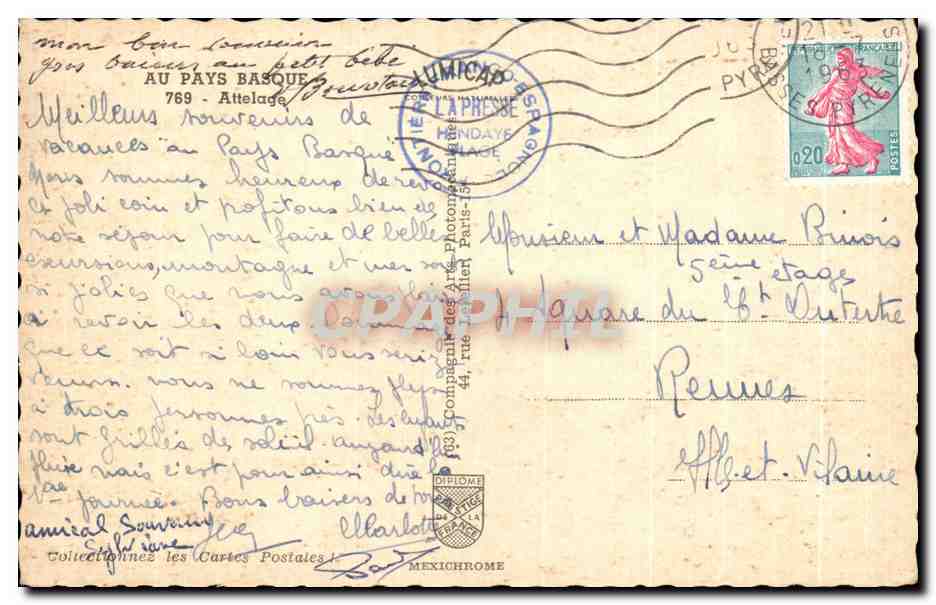 mon bon souvenir
gros baisers au petit bébé
AU PAYS BASQUE
769 - Attelage
LUMICAP
FRONTIÈRE FRANCO-ESPAGNOLE
LA PRESSE
HENDAYE
PLAGE
21 H
18-7
1963
BASSES PYRENEES
FRANÇAISE
0,20
POSTES
Meilleurs souvenirs de
vacances au Pays Basque
Nous sommes heureux de
ce joli coin et profitons bien de
notre séjour pour faire de belles
excursions, montagne et mer sont
si jolies que nous avons
à revoir les deux
que ce soit si loin vous seriez
venus. nous ne sommes plus
à trois personnes près Les enfants
sont grillés de soleil aujourd'hui
pluie mais c'est pour ainsi dire la
1ère journée. Bons baisers de
Charlotte
amical Souvenir
Sylviane
Monsieur et Madame Binois
5ème étage
4 Square du Lt Dutertre
Rennes
Ille-et-Vilaine
(93) Compagnie des Arts Photomécaniques
44, rue Letellier, Paris-15e
CPAPHIL
DIPLOME
PRESTIGE
DE LA
FRANCE
MEXICHROME
Collectionnez les Cartes Postales !